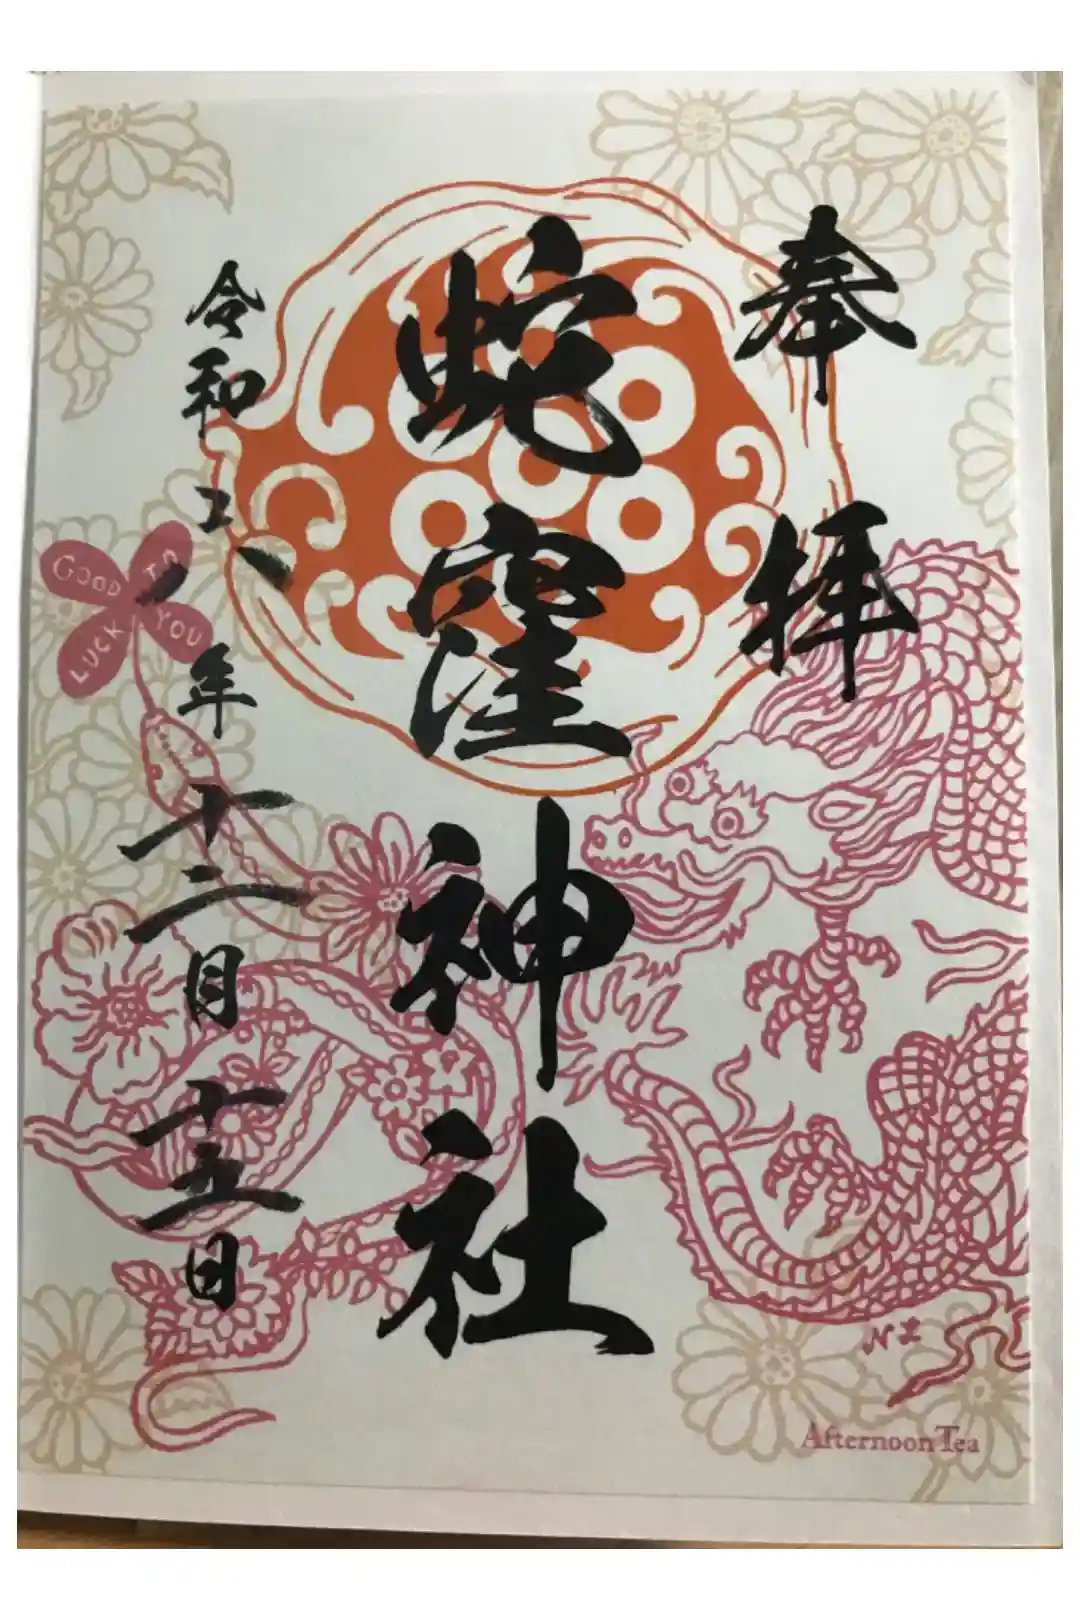 奉拝
蛇窪神社
令和六年十二月十五日
GOOD
LUCK
TO
YOU
Afternoon Tea